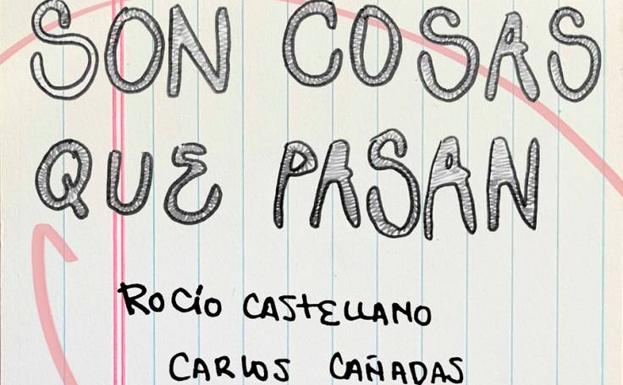 SON COSAS
QUE PASAN
ROCÍO CASTELLANO
CARLOS CAÑADAS